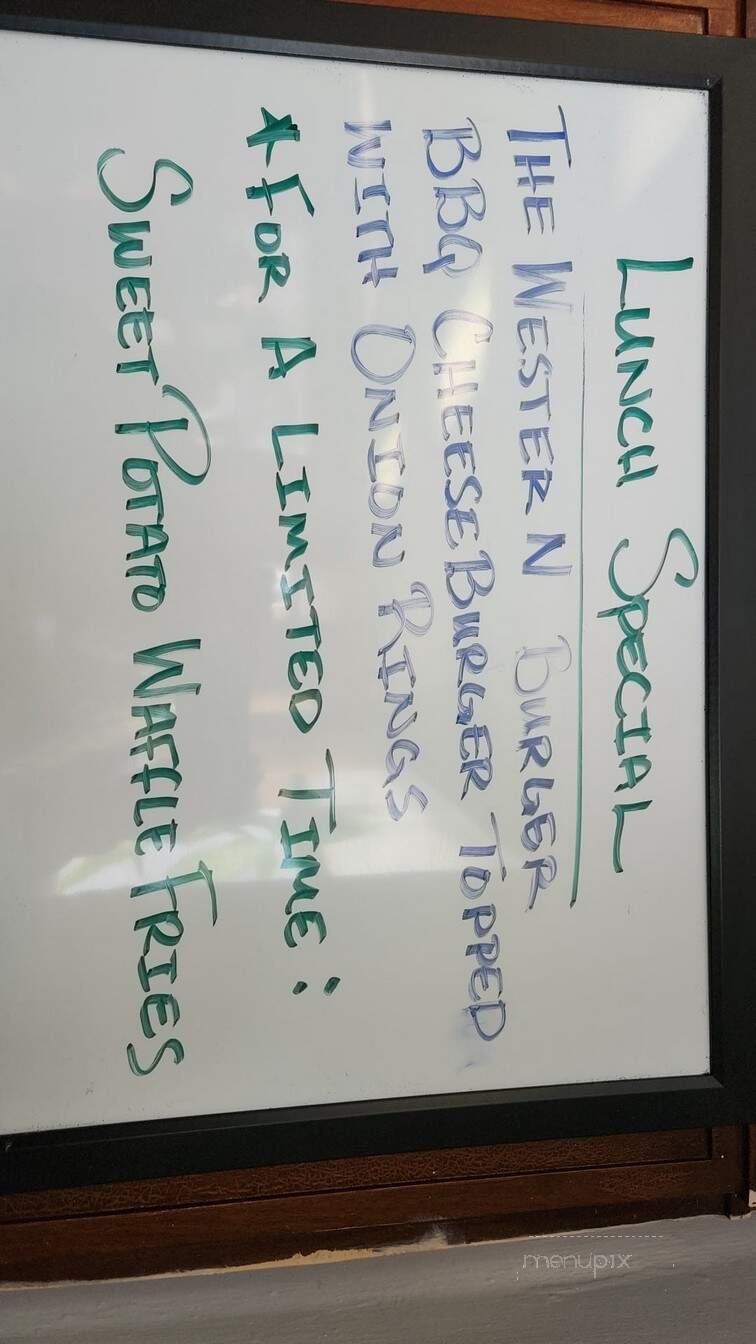 LUNCH SPECIAL
THE WESTERN BURGER
BBQ CHEESEBURGER TOPPED
WITH ONION RINGS
*FOR A LIMITED TIME:
SWEET POTATO WAFFLE FRIES
menupix